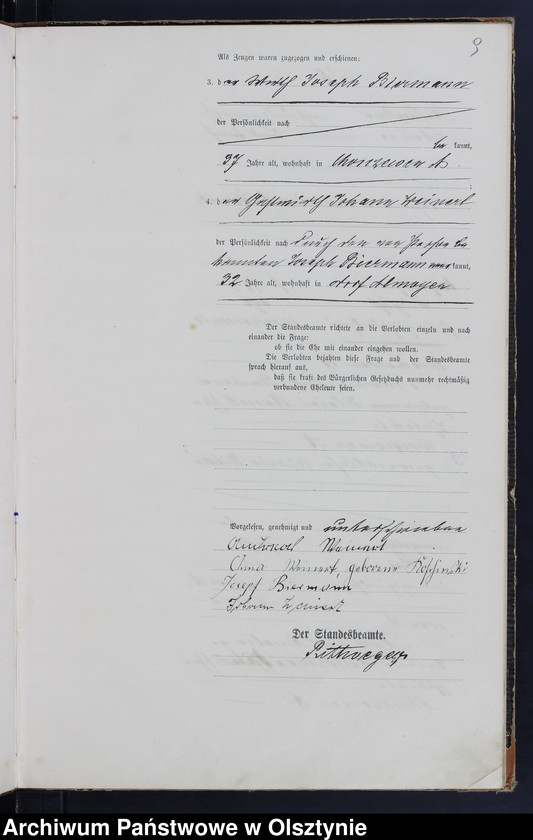 9
Als Zeugen waren zugezogen und erschienen:
3. der Wirth Joseph Biermann
der Persönlichkeit nach
be kannt,
37 Jahre alt, wohnhaft in
4. der Gastwirth Johann Weinert
der Persönlichkeit nach durch den von Person be
kannten Joseph Biermann aner kannt,
32 Jahre alt, wohnhaft in Dorf Almoyen
Der Standesbeamte richtete an die Verlobten einzeln und nach
einander die Frage:
ob sie die Ehe mit einander eingehen wollen.
Die Verlobten bejahten diese Frage und der Standesbeamte
sprach hierauf aus,
daß sie kraft des Bürgerlichen Gesetzbuchs nunmehr rechtmäßig
verbundene Eheleute seien.
Vorgelesen, genehmigt und unterschrieben
Weinert
Anna Weinert geborene
Josepf Biermann
Johann Weinert
Der Standesbeamte.
Archiwum Państwowe w Olsztynie